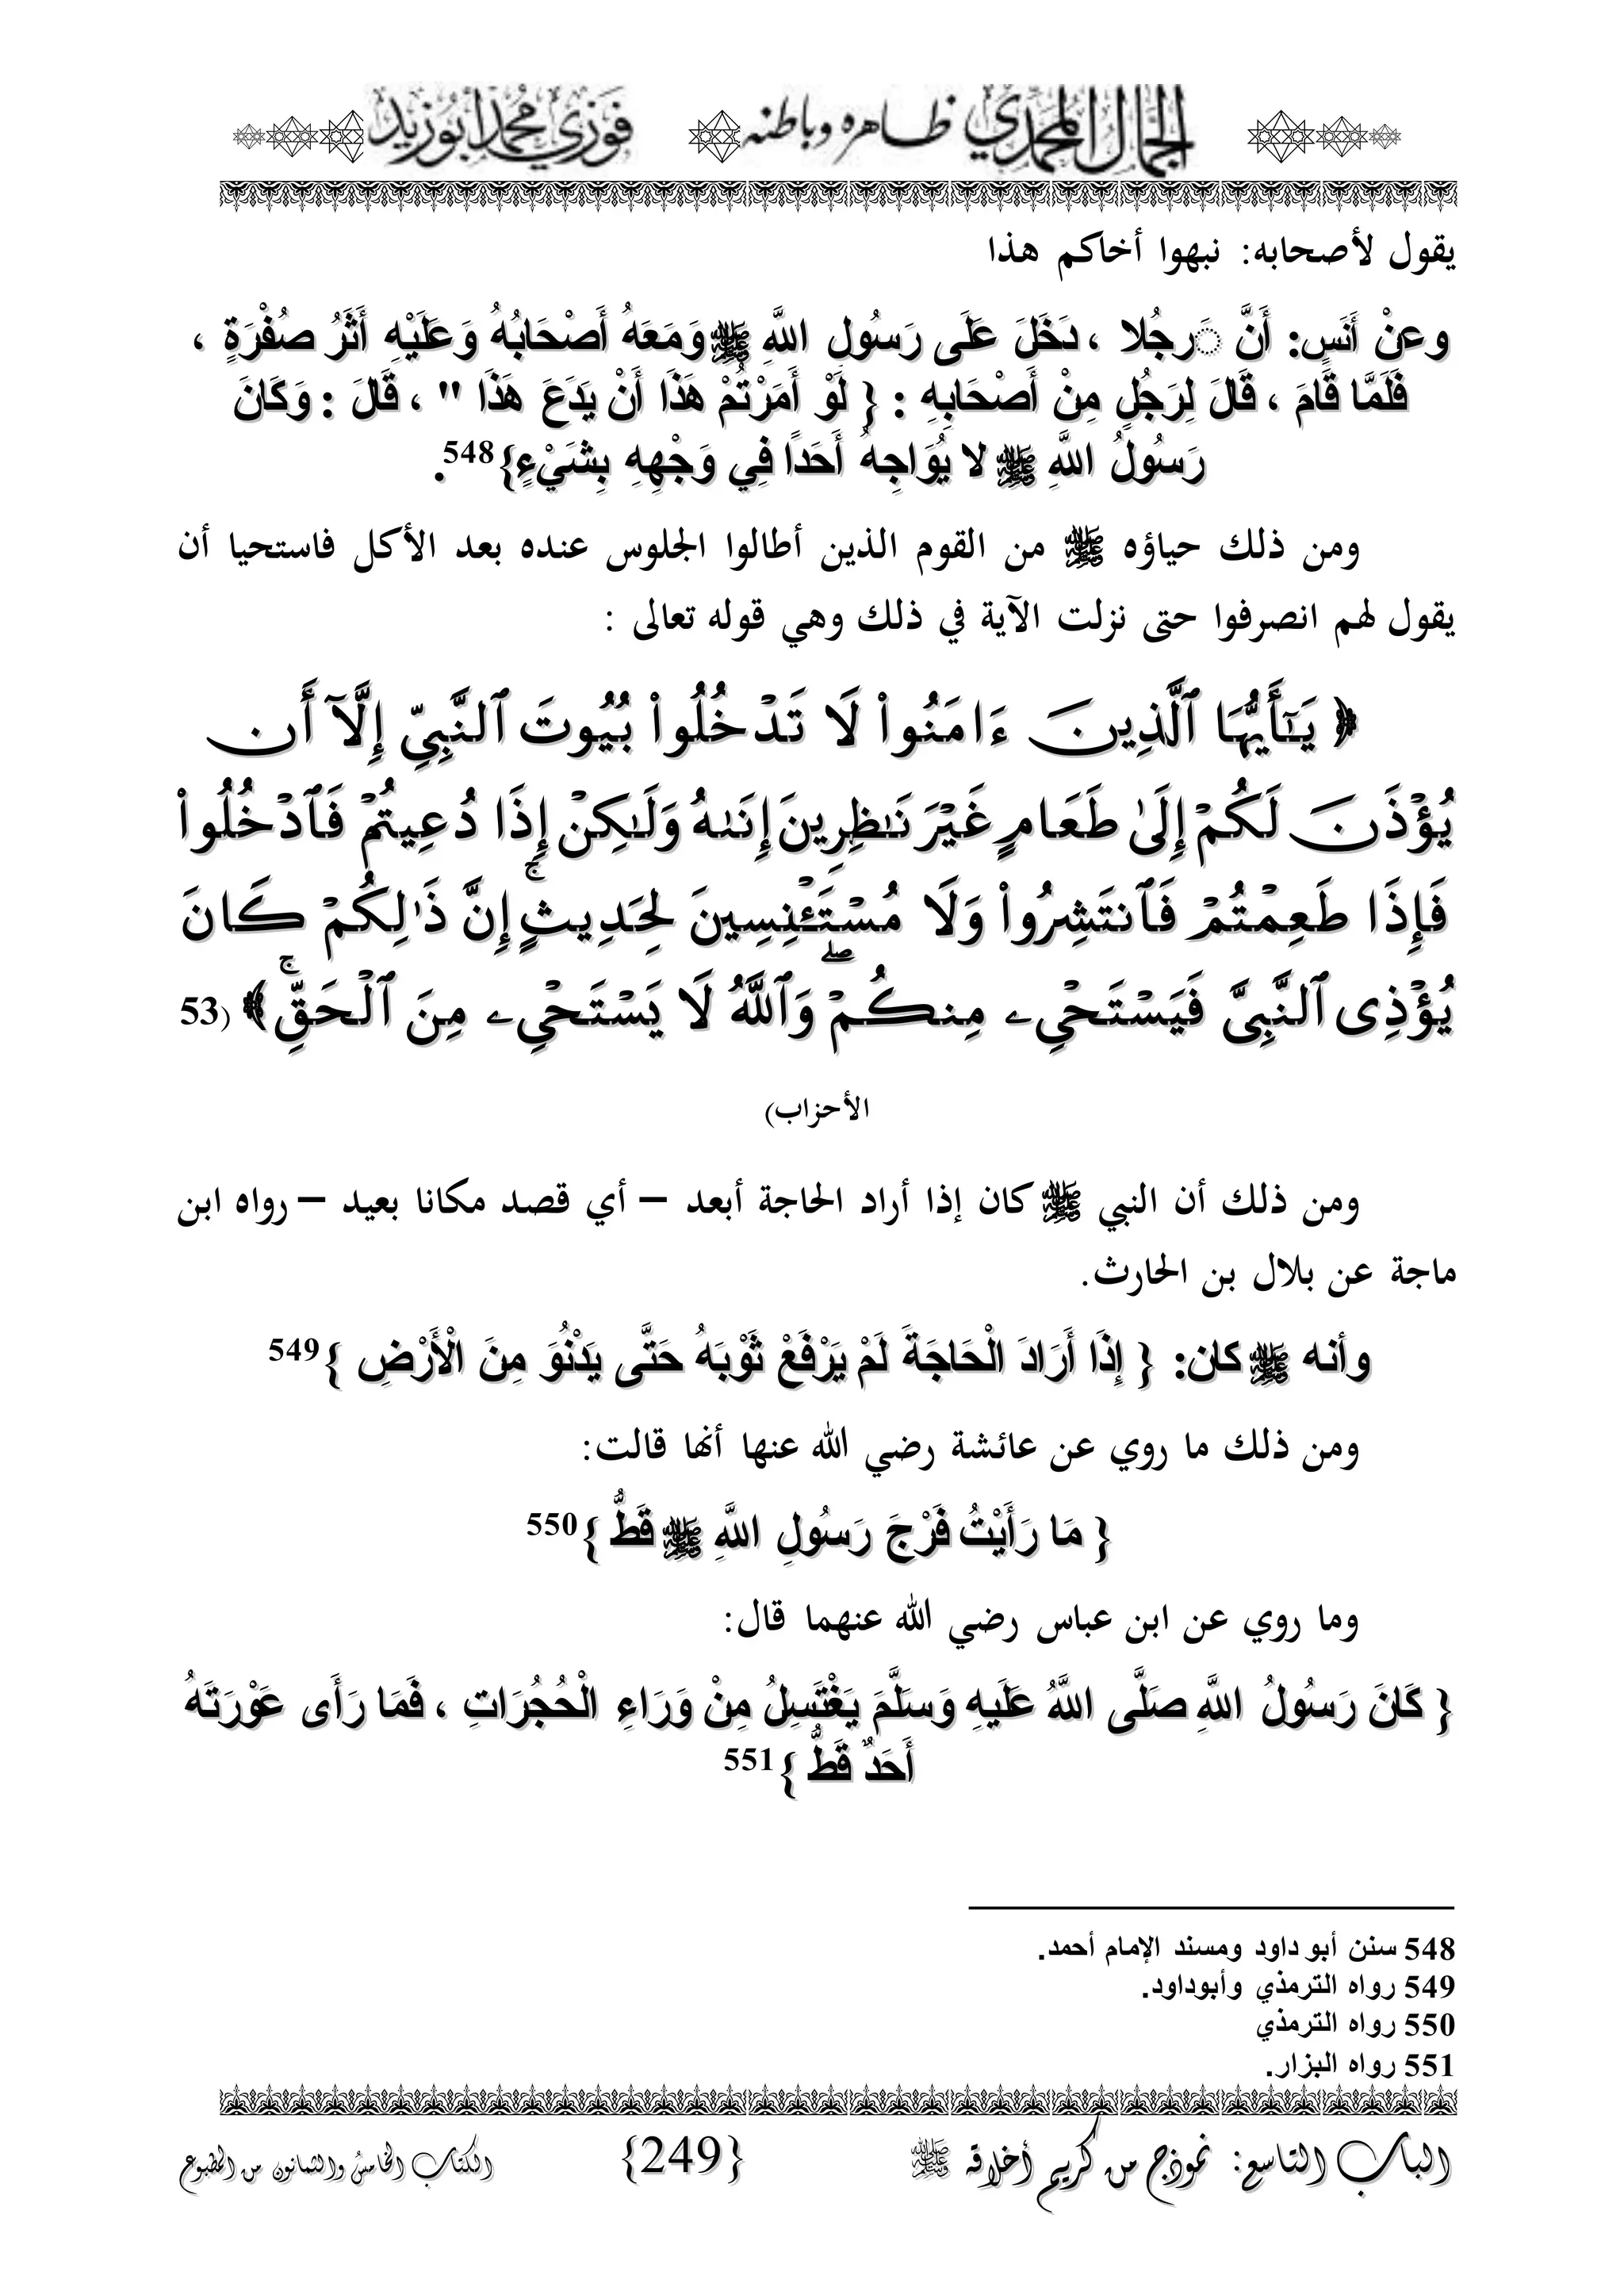 الجمال المحمدي ظاهره وباطنه فوزي محمد أبوزيد
يقول لأصحابه: نبهوا أخاكم هذا
وعنْ أَنَسٍ: أَنَّ َرجُلا ، دَخَلَ عَلَى رَسُول اللَّهِ ﷺ وَمَعَهُ أَصْحَابُهُ وَعَلَيْهِ أَثَرُ صُفْرَةٍ ،
فَلَمَّا قَامَ ، قَالَ لِرَجُلٍ مِنْ أَصْحَابِهِ : { لَوْ أَمَرْتُمْ هَذَا أَنْ يَدَعَ هَذَا " ، قَالَ : وَكَانَ
رَسُولُ اللَّهِ ﷺ لا يُوَاجِهُ أَحَدًا فِي وَجْهِهِ بِشَيْءٍ}548.
ومن ذلك حياؤه ﷺ من القوم الذين أطالوا الجلوس عنده بعد الأكل فاستحيا أن
يقول لهم انصرفوا حتى نزلت الآية في ذلك وهي قوله تعالى :
﴿ يَـٰٓأَيُّهَا ٱلَّذِينَ ءَامَنُوا۟ لَا تَدْخُلُوا۟ بُيُوتَ ٱلنَّبِىِّ إِلَّآ أَن
يُؤْذَنَ لَكُمْ إِلَىٰ طَعَامٍ غَيْرَ نَـٰظِرِينَ إِنَىٰهُ وَلَـٰكِنْ إِذَا دُعِيتُمْ فَٱدْخُلُوا۟
فَإِذَا طَعِمْتُمْ فَٱنتَشِرُوا۟ وَلَا مُسْتَـْٔنِسِينَ لِحَدِيثٍ ۚ إِنَّ ذَٰلِكُمْ كَانَ
يُؤْذِى ٱلنَّبِىَّ فَيَسْتَحْىِۦ مِنكُمْ ۖ وَٱللَّهُ لَا يَسْتَحْىِۦ مِنَ ٱلْحَقِّ ۚ ﴾ (53
الأحزاب)
ومن ذلك أن النبي ﷺ كان إذا أراد الحاجة أبعد – أي قصد مكانا بعيد – رواه ابن
ماجة عن بلال بن الحارث.
وأنه ﷺ كان: { إِذَا أَرَادَ الْحَاجَةَ لَمْ يَرْفَعْ ثَوْبَهُ حَتَّى يَدْنُوَ مِنَ الْأَرْضِ }549
ومن ذلك ما روي عن عائشة رضي الله عنها أنها قالت:
{ مَا رَأَيْتُ فَرْجَ رَسُولِ اللَّهِ ﷺ قَطُّ }550
وما روي عن ابن عباس رضي الله عنهما قال:
{ كَانَ رَسُولُ اللَّهِ صَلَّى اللَّهُ عَلَيهِ وَسَلَّمَ يَغْتَسِلُ مِنْ وَرَاءِ الْحُجُرَاتِ ، فَمَا رَأَى عَوْرَتَهُ
أَحَدٌ قَطُّ }551
548 سنن أبو داود ومسند الإمام أحمد.
549 رواه الترمذي وأبوداود.
550 رواه الترمذي
551 رواه البزار.
الباب التاسع: نموذج من كريم أخلاقه ﷺ {249} الكتاب الخامس والثمانون من المطبوع